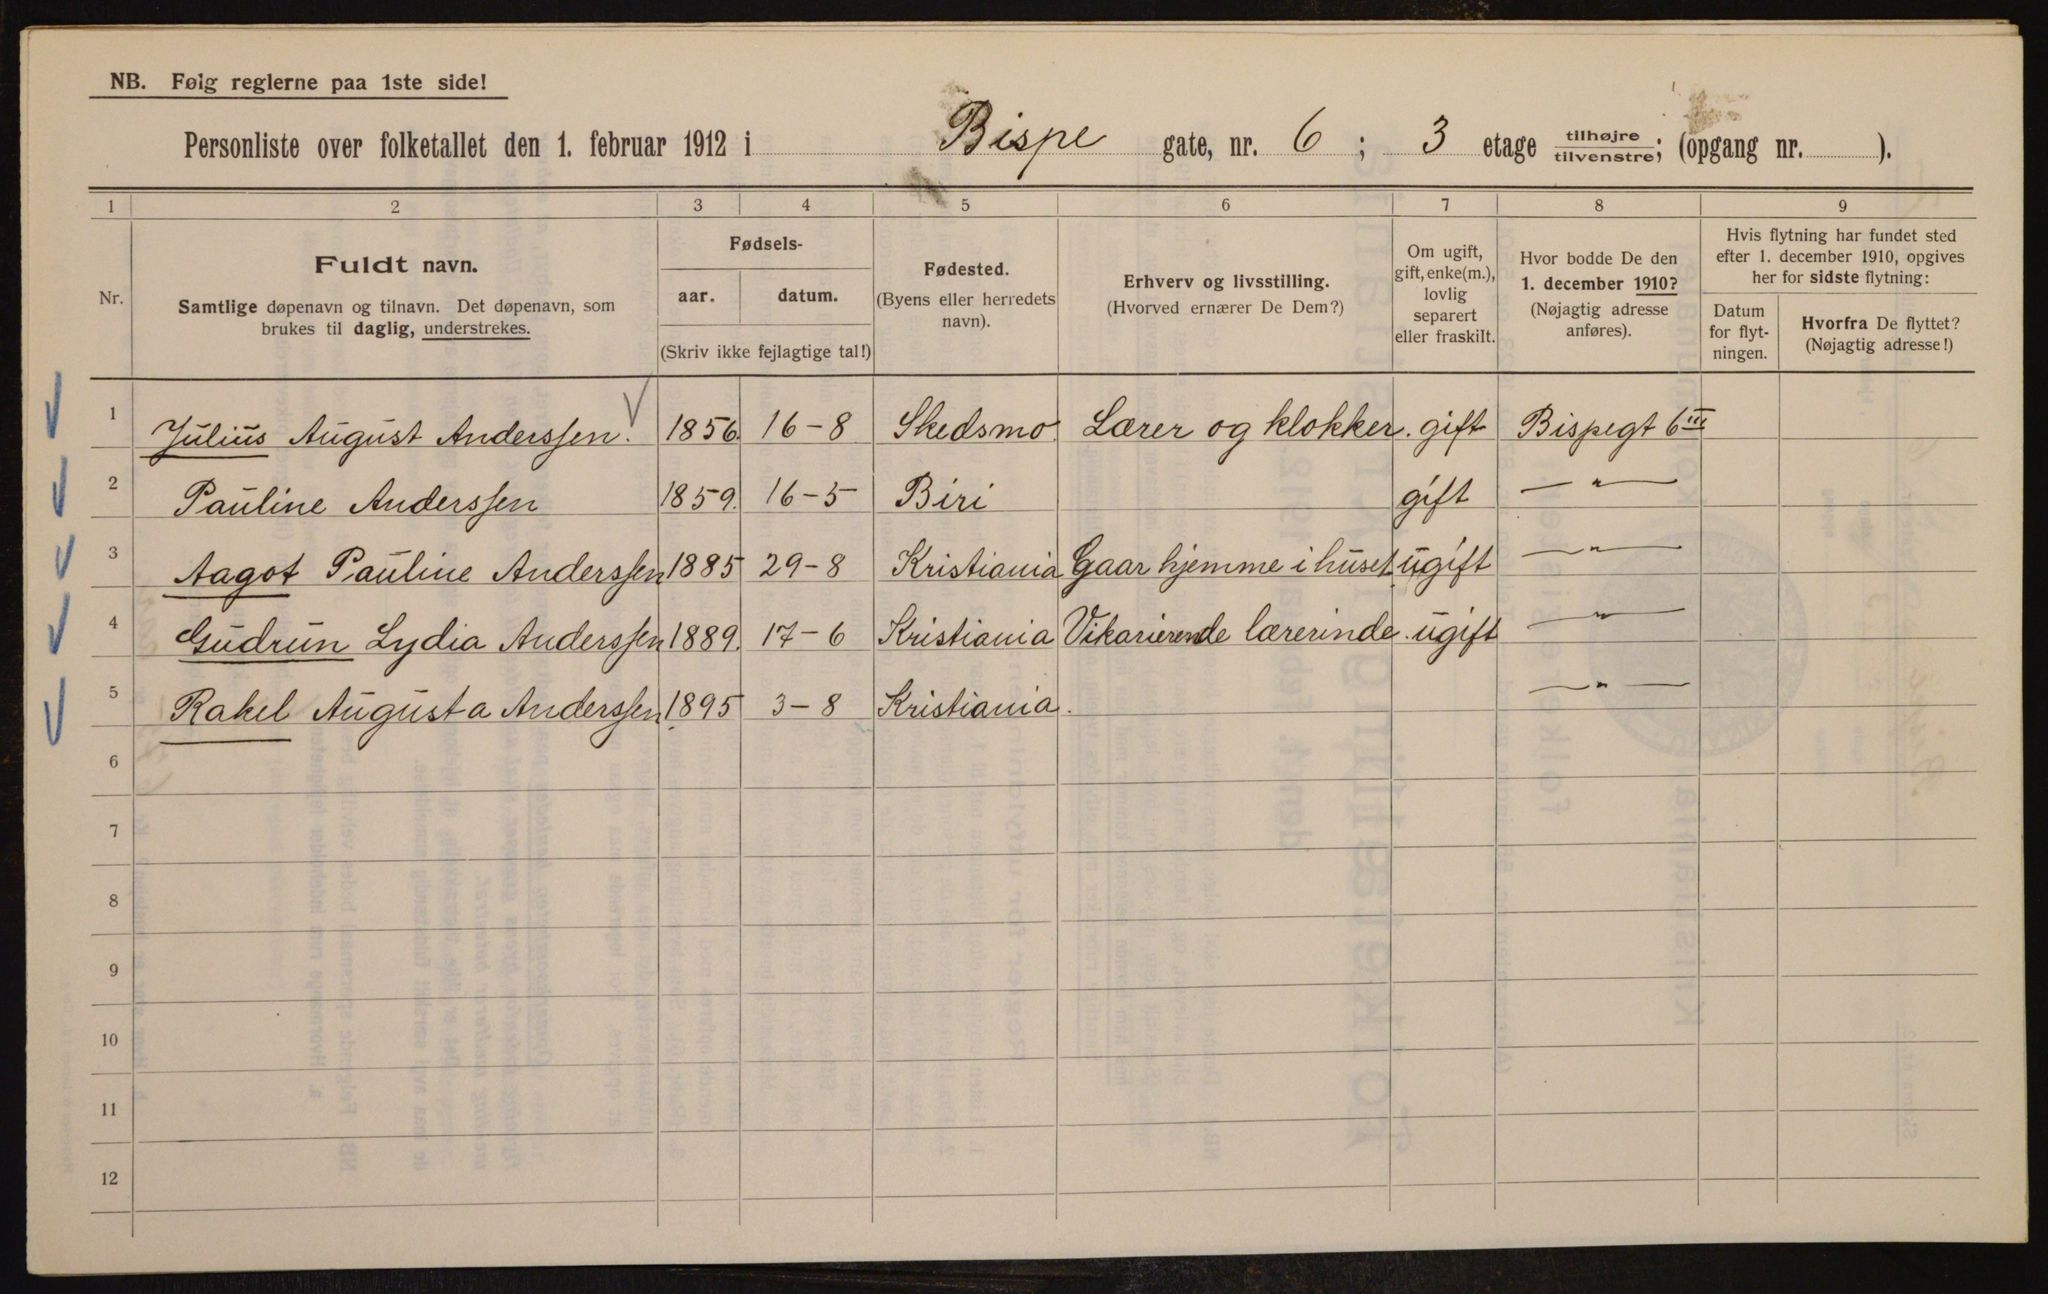 NB. Følg reglerne paa 1ste side!
Personliste over folketallet den 1. februar 1912 i Bispe gate, nr. 6 ; 3 etage tilhøjre tilvenstre; (opgang nr. ).
1 2 3 4 5 6 7 8 9
Nr.
Fuldt navn.
Samtlige døpenavn og tilnavn. Det døpenavn, som
brukes til daglig, understrekes.
Fødsels-
aar. datum.
(Skriv ikke fejlagtige tal!)
Fødested.
(Byens eller herredets
navn).
Erhverv og livsstilling.
(Hvorved ernærer De Dem?)
Om ugift,
gift, enke(m.),
lovlig
separert
eller fraskilt.
Hvor bodde De den
1. december 1910?
(Nøjagtig adresse
anføres).
Hvis flytning har fundet sted
efter 1. december 1910, opgives
her for sidste flytning:
Datum
for flyt-
ningen.
Hvorfra De flyttet?
(Nøjagtig adresse!)
1 Julius August Anderssen. 1856. 16-8 Skedsmo Lærer og klokker. gift Bispegt 6 III
2 Pauline Anderssen 1859. 16-5 Biri gift — " —
3 Aagot Pauline Anderssen 1885 29-8 Kristiania Gaar hjemme i huset. ugift — " —
4 Gudrun Lydia Anderssen 1889. 17-6 Kristiania Vikarierende lærerinde. ugift — " —
5 Rakel Augusta Anderssen 1895 3-8 Kristiania. — " —
6
7
8
9
10
11
12